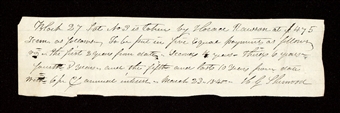 Block 27 Lot No 3 is taken by Horace Rawson at $475
Terms as follows. To be paid in five equal payments as follows
the first 2 years from date. Second 4 years. Third 6 years
Fourth 8 years and the fifth and last 10 years from date
With 6 pr ct annual interest March 23. H. G. Sherwood